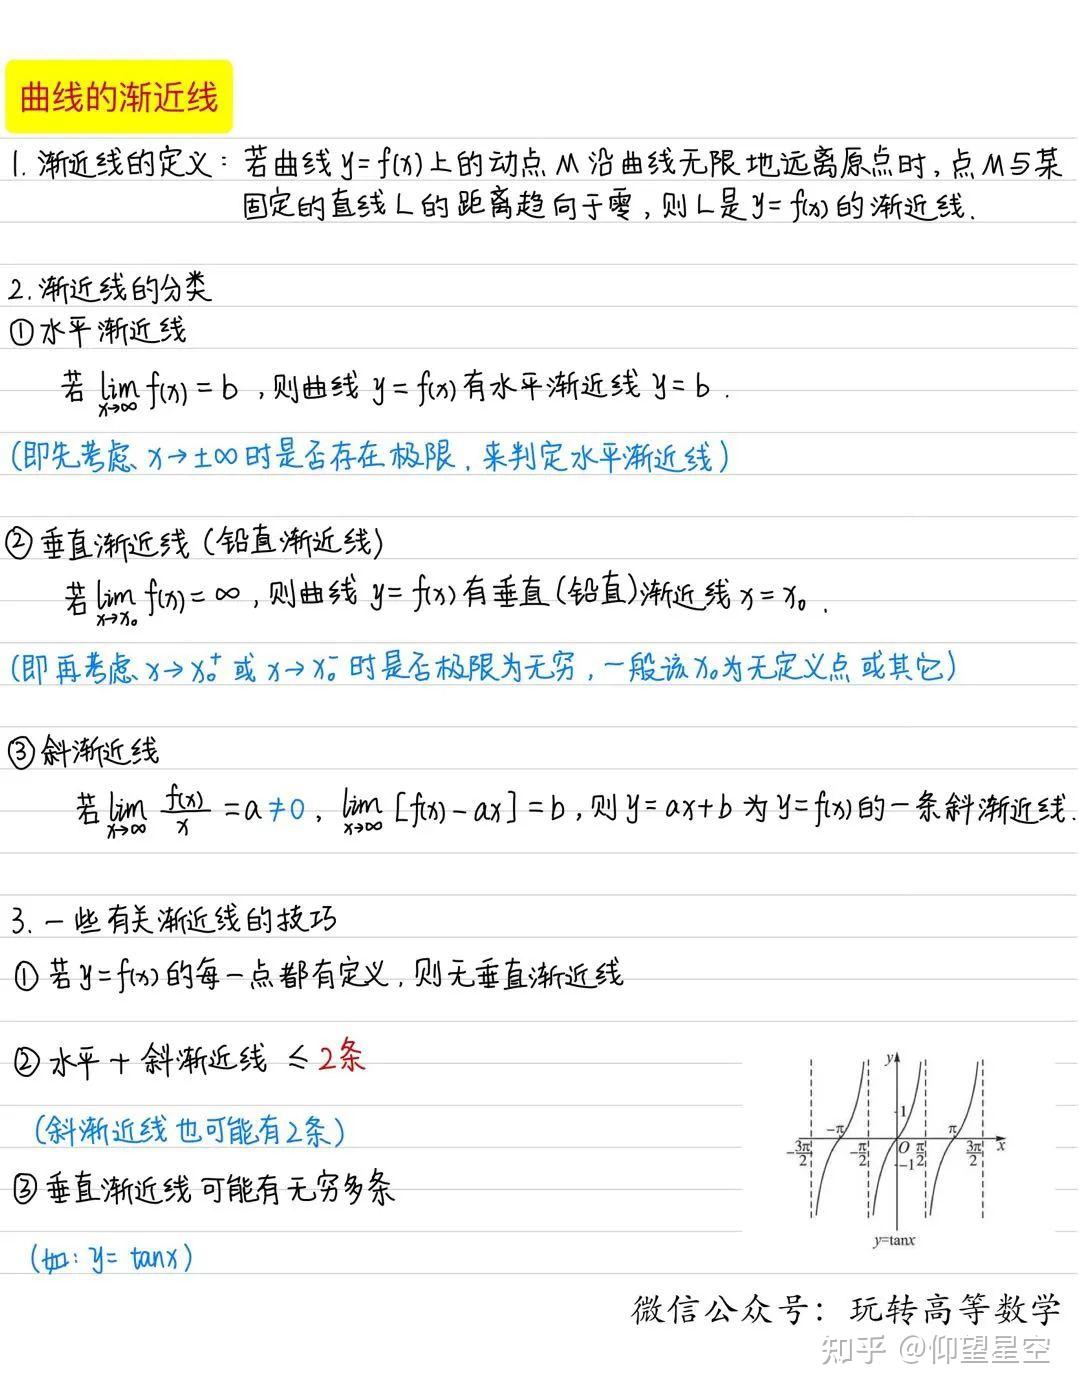 曲线的渐近线
1. 渐近线的定义：若曲线 y=f(x)上的动点 M 沿曲线无限地远离原点时，点M与某
固定的直线L的距离趋向于零，则L是y=f(x)的渐近线.
2. 渐近线的分类
①水平渐近线
若 lim x→∞ f(x) = b ，则曲线 y=f(x)有水平渐近线 y=b .
(即先考虑 x→±∞时是否存在极限，来判定水平渐近线)
②垂直渐近线 (铅直渐近线)
若 lim x→x₀ f(x) = ∞ ，则曲线 y=f(x)有垂直(铅直)渐近线 x=x₀ .
(即再考虑 x→x₀⁺ 或 x→x₀⁻ 时是否极限为无穷，一般该x₀为无定义点或其它)
③斜渐近线
若 lim x→∞ f(x)/x = a ≠0 ，lim x→∞ [f(x)-ax] = b ，则 y=ax+b 为 y=f(x)的一条斜渐近线.
3. 一些有关渐近线的技巧
① 若 y=f(x)的每一点都有定义，则无垂直渐近线
② 水平 + 斜渐近线 ≤ 2条
(斜渐近线也可能有2条)
③ 垂直渐近线可能有无穷多条
(如: y= tanx)
y
1
-π
π
-3π/2
-π/2
O
π/2
3π/2
x
-1
y=tanx
微信公众号：玩转高等数学
知乎 @仰望星空